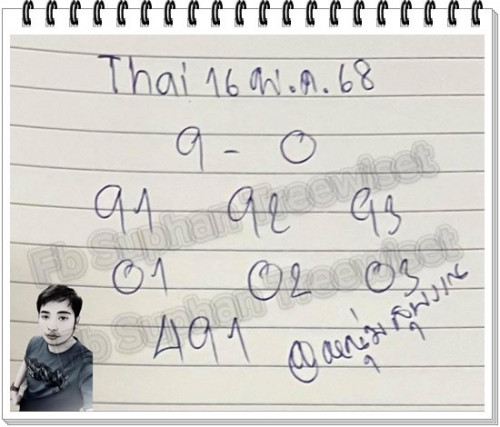 Thai 16 พ.ค. 68
9 - 0
91 92 93
01 02 03
491
@หนุ่มสุพรรณ
Fb Suphan Treewiset
Fb Suphan Treewiset